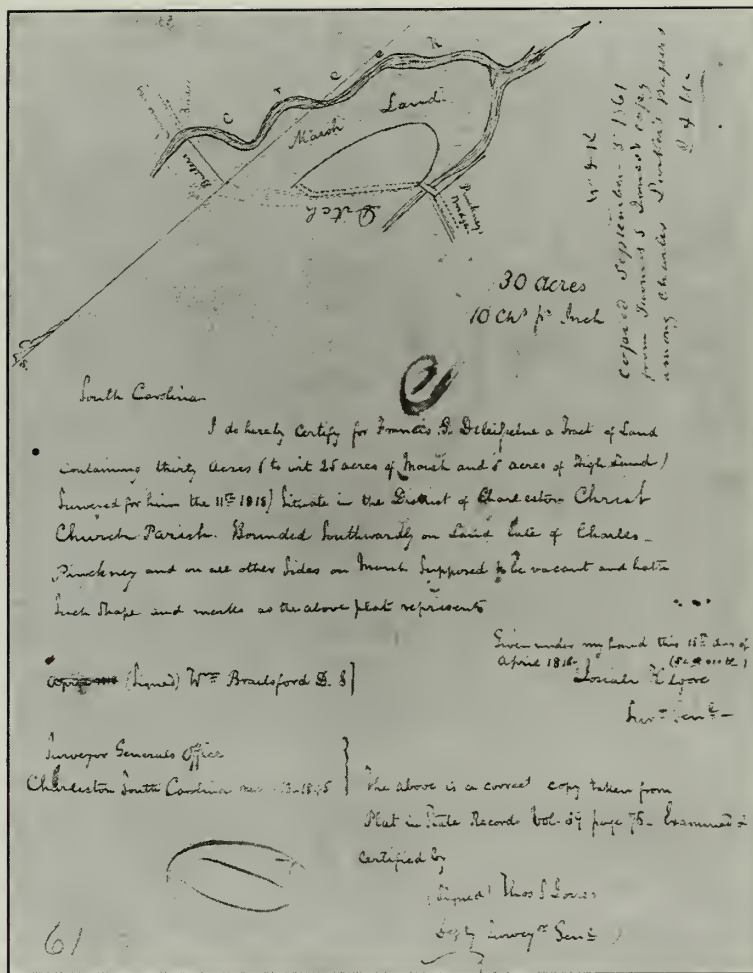 C r e e k
Marsh Land
Ditch
30 acres
10 Chs pr Inch
Copied September 1861
from
among Charles Parker's Papers
South Carolina
I do hereby Certify for Francis G. Deliesseline a Tract of Land
containing thirty Acres (to wit 25 acres of Marsh and 5 acres of High Land)
Surveyed for him the 11th 1818) Situate in the District of Charleston Christ
Church Parish. Bounded Southwardly on Land late of Charles
Pinckney and on all other Sides on Marsh Supposed to be vacant and hath
Such Shape and marks as the above plat represents
Given under my hand this 15th day of
April 1818
(Signed) Wm Brailsford D. S]
Josiah Kilgore
Survr Genl
Surveyor Generals Office
Charleston South Carolina
The above is a correct copy taken from
Plat in State Records Vol. page 75 - Examined &
Certified by
(Signed) Thos
Depty Surveyor Genl
61